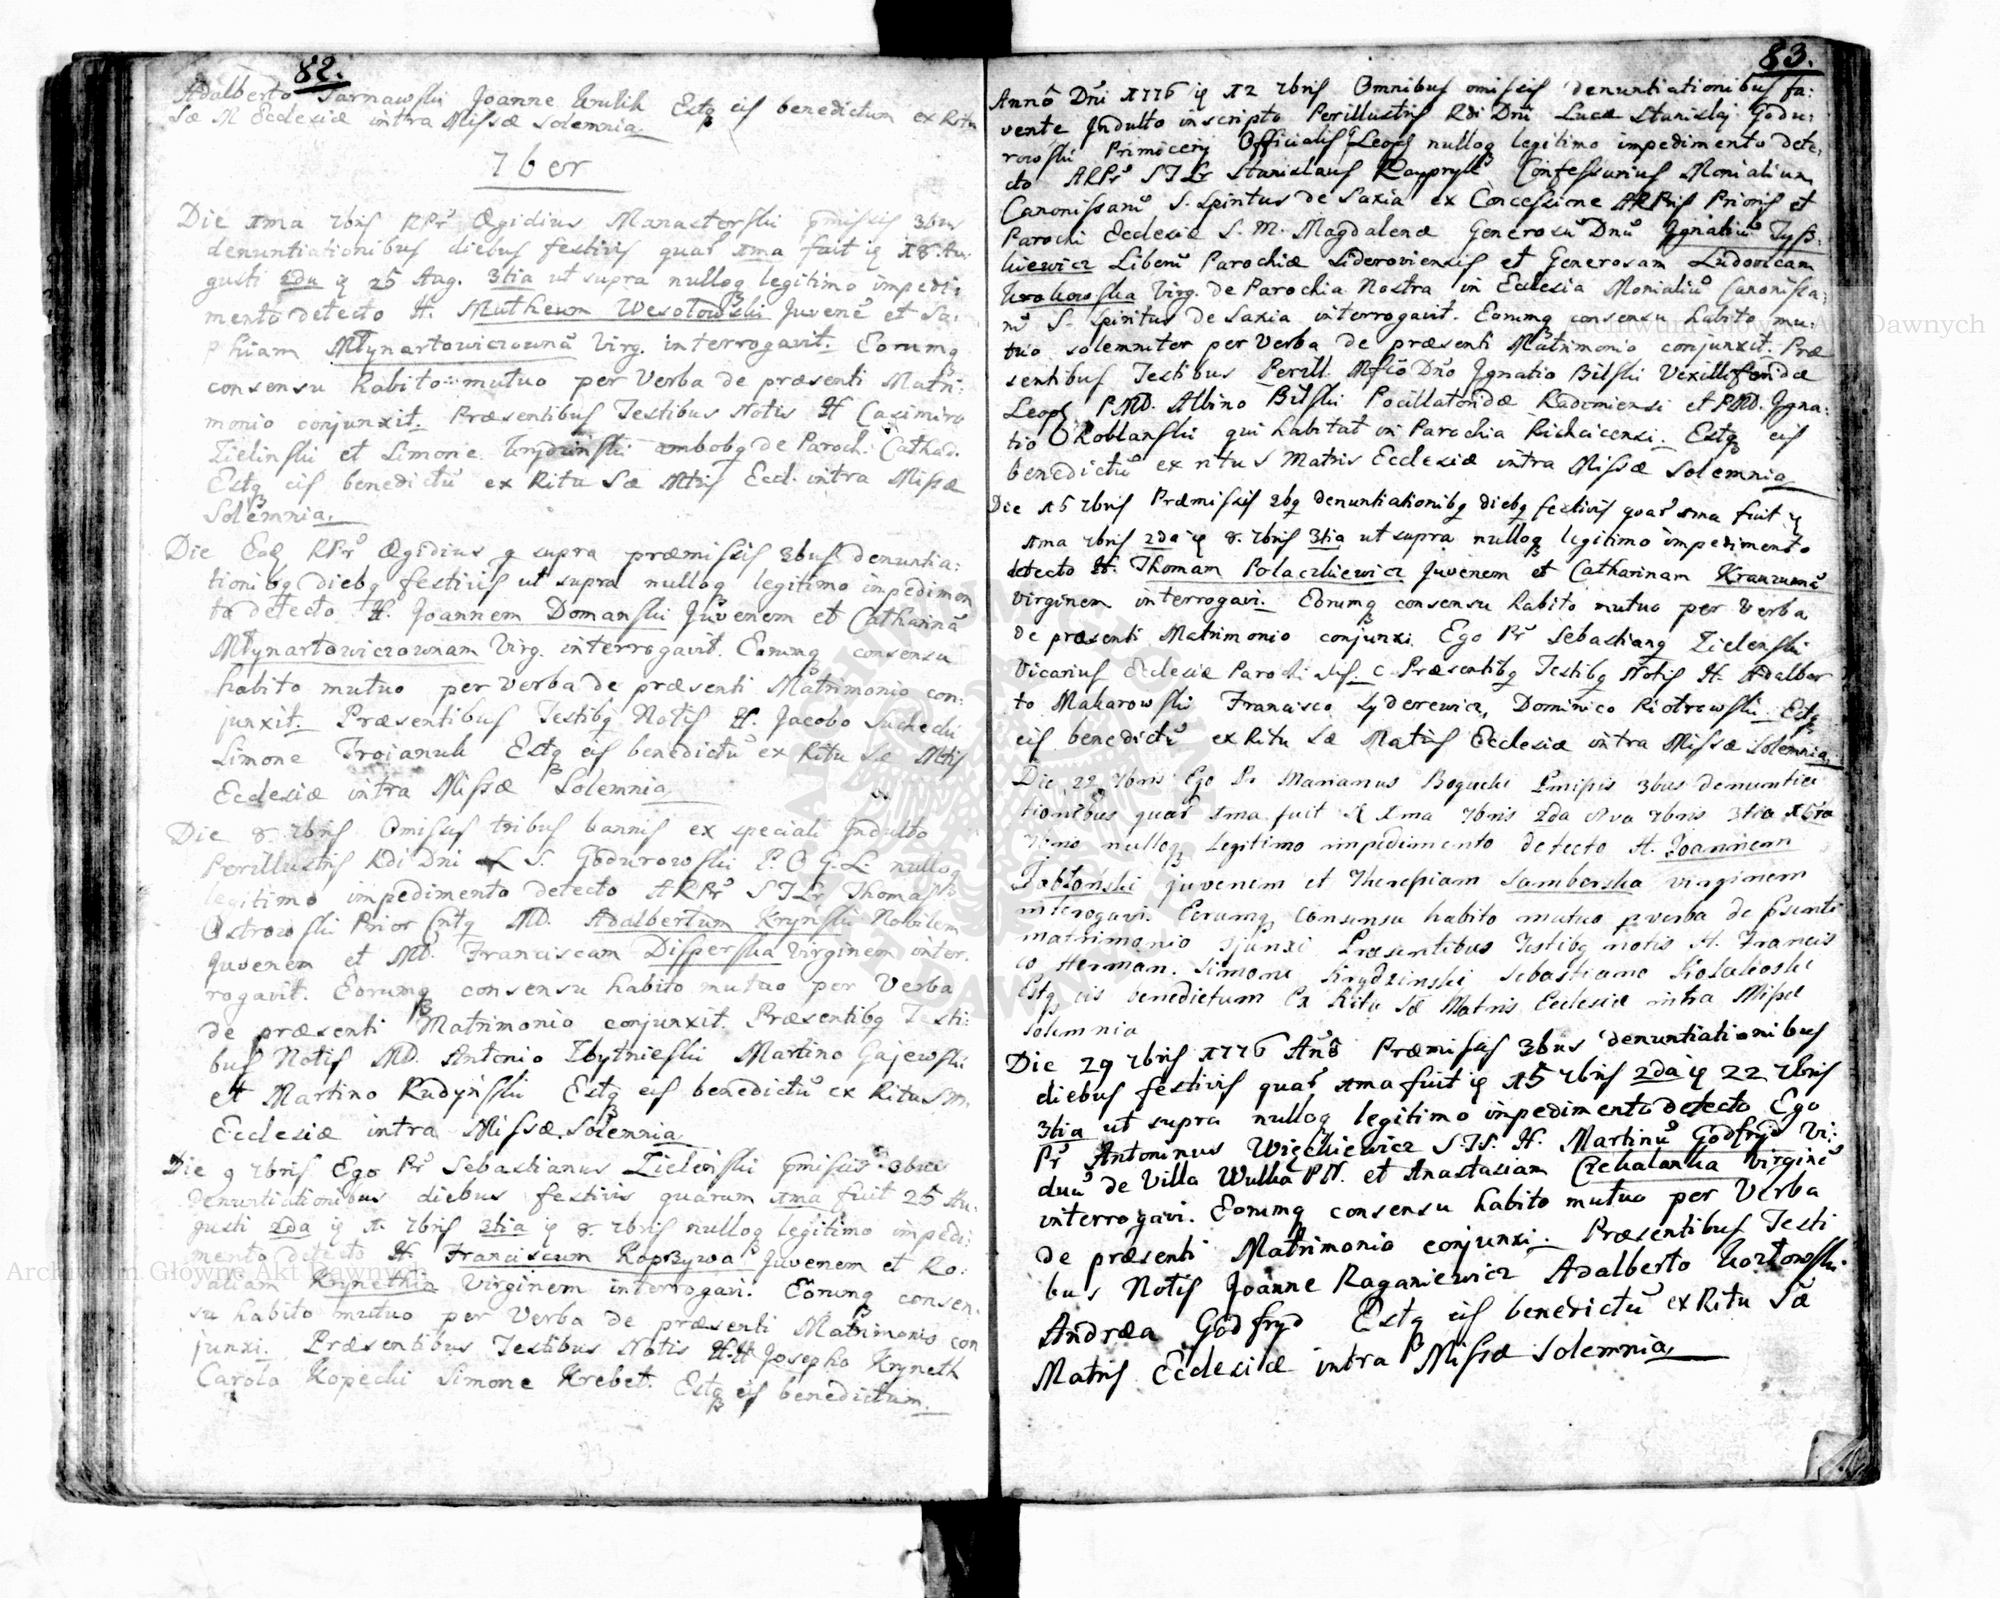 82.
Adalberto Tarnawski Joanne Kulik Estq eis benedictum ex Ritu
Sæ M Ecclesiæ intra Missæ solemnia.
7ber
Die 1ma 7bris RPr Ægidius Manasterski p̄missis 3bus
denuntiationibus diebus festivis quar̄ 1ma fuit 18 Au
gusti 2da 25 Aug. 3tia ut supra nulloq legitimo impedi:
mento detecto H. Matheum Wesołowski Juvenē et So:
phiam Młynartowiczownā Virg. interrogavit. Eorumq
consensu habito mutuo per Verba de præsenti Matri:
monio conjunxit. Præsentibus Testibus Notis H Casimiro
Zielinski et Simone ambobq de Paroch. Cathed.
Estq eis benedictū ex Ritu Sæ Mtris Eccl. intra Missæ
Solemnia.
Die Eaē RPr Ægidius q supra præmissis 3bus denuntia:
tionibq diebq festivis ut supra nulloq legitimo impedimen
to detecto H. Joannem Domanski Juvenem et Catharinā
Młynartowiczownam Virg. interrogavit. Eorumq consensu
habito mutuo per Verba de præsenti Matrimonio con:
junxit. Præsentibus Testibq Notis H. Jacobo Suchecki
Simone Troianuk Estq eis benedictū ex Ritu Sæ Mtris
Ecclesiæ intra Missæ Solemnia
Die 8. 7bris Omissis tribus bannis ex speciali Indulto
Perillustris Rdi Dni L S. Godurowski P. O G. L. nulloq
legitimo impedimento detecto ARPr STLr Thomas
Ostrowski Prior Cntq MD. Adalbertum Krynski Nobilem
Juvenem et MD. Franciscam Disperska Virginem inter.
rogavit. Eorumq consensu habito mutuo per Verba
de præsenti Matrimonio conjunxit. Præsentibq Testi:
bus Notis MD. Antonio Zbytnieski Martino Gajewski
et Martino Rudyński Estq eis benedictū ex Ritu S M.
Ecclesiæ intra Missæ Solemnia
Die 9 7bris Ego Pr Sebastianus Zielinski p̄missis 3bus
denuntiationibus diebus festivis quarum 1ma fuit 25 Au:
gusti 2da 1 7bris 3tia 8. 7bris nulloq legitimo impedi:
mento detecto H. Franciscum Koprzywa Juvenem et Ro:
saliam Krynethin Virginem interrogavi. Eorumq consen:
su habito mutuo per Verba de præsenti Matrimonio con
junxi. Præsentibus Testibus Notis H.H Josepho Kryneth
Carolo Kopecki Simone Krebet. Estq eis benedictum.
83.
Annō Dni 1776 12 7bris Omnibus omissis denuntiationibus fa:
vente Indulto inscripto Perillustris Rdi Dni Lucæ Stanislai Godu:
rowski Primicerij Officialis Leopł nulloq legitimo impedimento dete:
cto ARPr STLr Stanislaus Confessarius Monialium
Canonissarū S. Spiritus de Saxia ex Concessione ARPris Prioris et
Parochi Ecclesiæ S. M. Magdalenæ Generosū Dnū Ignatiū Tysz:
kiewicz Liberū Parochiæ Sideroviensis et Generosam Ludovicam
Krakowska Virg. de Parochia Nostra in Ecclesia Monialiū Canonissa:
rū S. Spiritus de Saxia interrogavit. Eorumq consensu habito mu:
tuo solemniter per Verba de præsenti Matrimonio conjunxit. Præ
sentibus Testibus Perill. Mfico Dno Ignatio Bilski Vexilliferidæ
Leopł PMD. Albino Bilski Pocillatoridæ Radomiensi et PMD. Igna:
tio Choblanski qui habitat in Parochia. Estq eis
benedictū ex ritu S Matris Ecclesiæ intra Missæ Solemnia
Die 15 7bris Præmissis 3bq denuntiationibq diebq festivis quar̄ 1ma fuit
1ma 7bris 2da 8. 7bris 3tia ut supra nulloq legitimo impedimento
detecto H. Thomam Polaczkiewicz Juvenem et Catharinam Krauzuwnā
Virginem interrogavi. Eorumq consensu habito mutuo per Verba
de præsenti Matrimonio conjunxi. Ego Pr Sebastianq Zielenski
Vicarius Ecclesiæ Præsentibq Testibq Notis H. Adalber
to Makarowski Francisco Syderewicz, Dominico Piotrowski. Estq
eis benedictū ex Ritu Sæ Matris Ecclesiæ intra Missæ Solemnia.
Die 22 7bris Ego Pr Marianus Bogucki P̄missis 3bus denuntia
tionibus quar̄ 1ma fuit 1ma 7bris 2da 8va 7bris 3tia 15ta
7bris nulloq Legitimo impedimento detecto H. Joannem
Jabłonski juvenem et Theresiam Samberska virginem
interogavi. Eorumq consensu habito mutuo p verba de p̄senti
matrimonio cjunxi Præsentibus Testibq notis H. Francis
co Herman. Simone Krydzinski Sebastiano
Estq eis benedictum Ex Ritu Sæ Matris Ecclesiæ intra Missæ
solemnia
Die 29 7bris 1776 Anō Præmissis 3bus denuntiationibus
diebus festivis quar̄ 1ma fuit 15 7bris 2da 22 7bris
3tia ut supra nulloq legitimo impedimento detecto Ego
Pr Antoninus Więckiewicz S.T.S. H. Martinū Godfryd Vi:
duū de Villa Wulka PN. et Anastasiam Czekalanka Virginē
interrogavi. Eorumq consensu habito mutuo per Verba
de præsenti Matrimonio conjunxi. Præsentibus Testi
bus Notis Joanne Raganiewicz Adalberto Kozłowski
Andræa Godfryd Estq eis benedictū ex Ritu Sæ
Matris Ecclesiæ intra Missæ Solemnia.
Archiwum Główne Akt Dawnych
Archiwum Główne Akt Dawnych